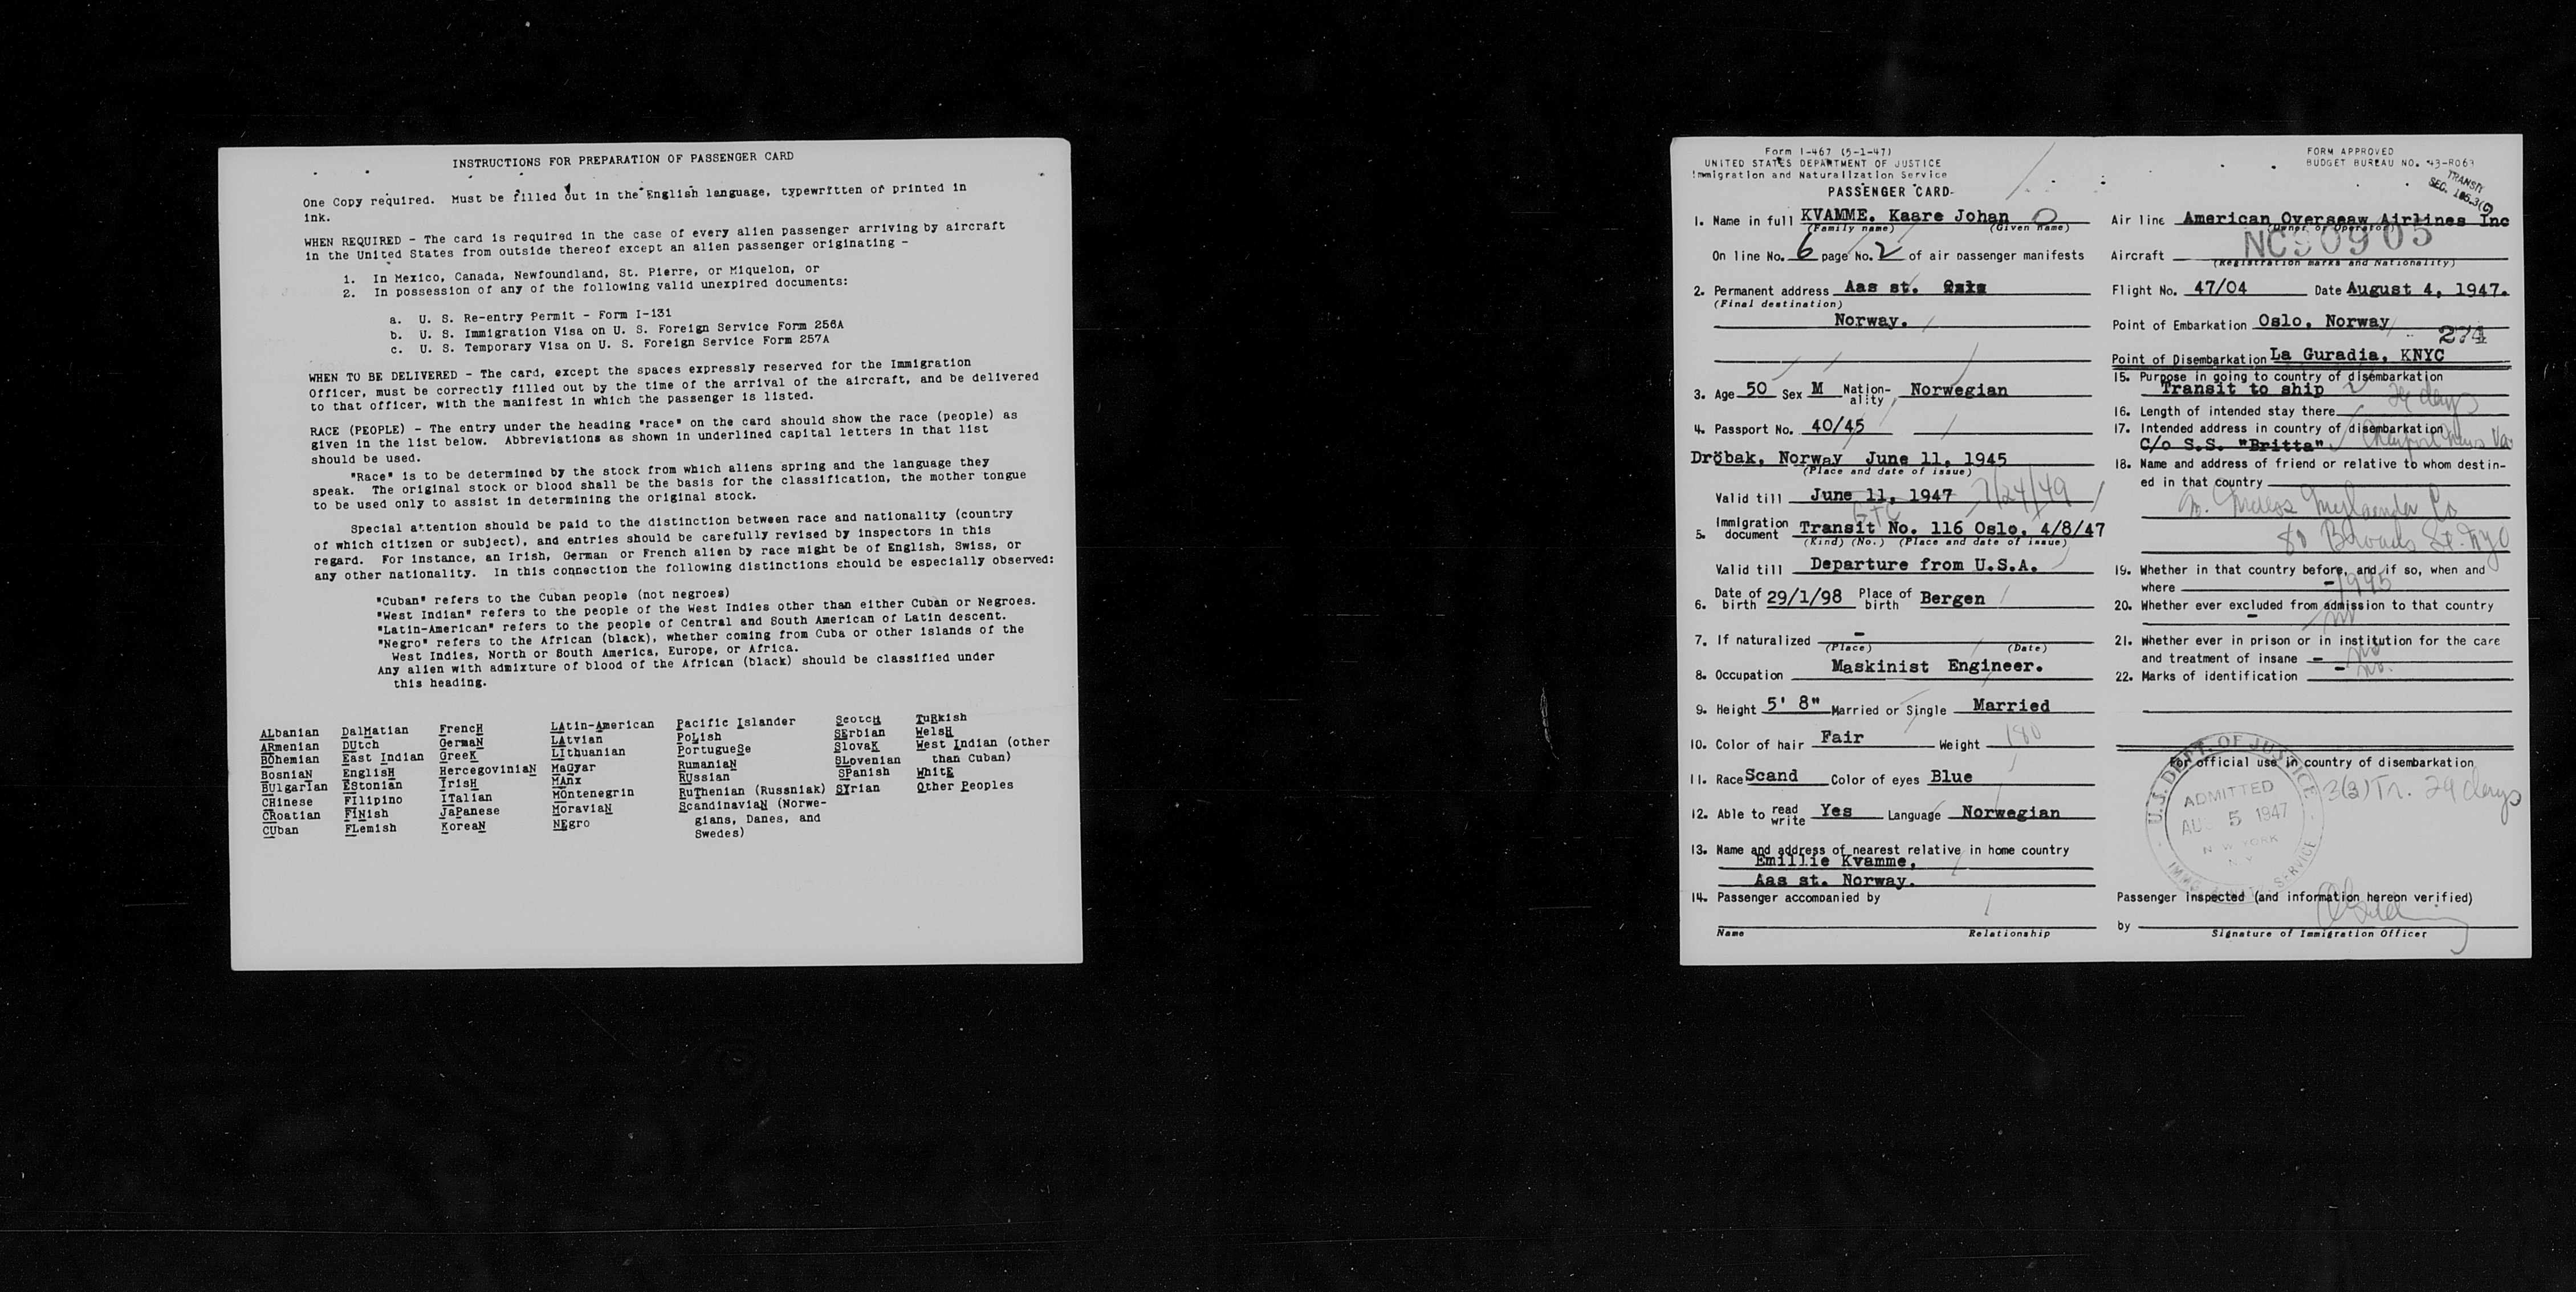 INSTRUCTIONS FOR PREPARATION OF PASSENGER CARD
One Copy required. Must be filled out in the English language, typewritten or printed in
ink.
WHEN REQUIRED - The card is required in the case of every alien passenger arriving by aircraft
in the United States from outside thereof except an alien passenger originating -
1. In Mexico, Canada, Newfoundland, St. Pierre, or Miquelon, or
2. In possession of any of the following valid unexpired documents:
a. U. S. Re-entry Permit - Form I-131
b. U. S. Immigration Visa on U. S. Foreign Service Form 256A
c. U. S. Temporary Visa on U. S. Foreign Service Form 257A
WHEN TO BE DELIVERED - The card, except the spaces expressly reserved for the Immigration
Officer, must be correctly filled out by the time of the arrival of the aircraft, and be delivered
to that officer, with the manifest in which the passenger is listed.
RACE (PEOPLE) - The entry under the heading "race" on the card should show the race (people) as
given in the list below. Abbreviations as shown in underlined capital letters in that list
should be used.
"Race" is to be determined by the stock from which aliens spring and the language they
speak. The original stock or blood shall be the basis for the classification, the mother tongue
to be used only to assist in determining the original stock.
Special attention should be paid to the distinction between race and nationality (country
of which citizen or subject), and entries should be carefully revised by inspectors in this
regard. For instance, an Irish, German or French alien by race might be of English, Swiss, or
any other nationality. In this connection the following distinctions should be especially observed:
"Cuban" refers to the Cuban people (not negroes)
"West Indian" refers to the people of the West Indies other than either Cuban or Negroes.
"Latin-American" refers to the people of Central and South American of Latin descent.
"Negro" refers to the African (black), whether coming from Cuba or other islands of the
West Indies, North or South America, Europe, or Africa.
Any alien with admixture of blood of the African (black) should be classified under
this heading.
ALbanian
ARmenian
BOhemian
BosniaN
BUlgarIan
CHinese
CRoatian
CUban
DalMatian
DUtch
East Indian
EnglisH
EStonian
FIlipino
FINish
FLemish
FrencH
GermaN
GreeK
HercegoviniaN
IrisH
ITalian
JaPanese
KoreaN
LAtin-American
LAtvian
LIthuanian
MaGyar
MAnx
MOntenegrin
MoraviaN
NEgro
Pacific Islander
PoLish
PortugueSe
RumaniaN
RUssian
RuThenian (Russniak)
ScandinaviaN (Norwe-
gians, Danes, and
Swedes)
ScotcH
SErbian
SlovaK
SLovenian
SPanish
SYrian
TuRkish
WelsH
West Indian (other
than Cuban)
WhitE
Other Peoples
Form I-467 (5-1-47)
UNITED STATES DEPARTMENT OF JUSTICE
Immigration and Naturalization Service
PASSENGER CARD
1. Name in full KVAMME. Kaare Johan
(Family name) (Given name)
On line No. 6 page No. 2 of air passenger manifests
2. Permanent address Aas st.
(Final destination)
Norway.
3. Age 50 Sex M Nation-ality Norwegian
4. Passport No. 40/45
Dröbak, Norway June 11, 1945
(Place and date of issue)
Valid till June 11, 1947 7/24/49
5. Immigration document Transit No. 116 Oslo, 4/8/47
(Kind) (No.) (Place and date of issue)
Valid till Departure from U.S.A.
6. Date of birth 29/1/98 Place of birth Bergen
7. If naturalized -
(Place) (Date)
8. Occupation Maskinist Engineer.
9. Height 5' 8" Married or Single Married
10. Color of hair Fair Weight 180
11. Race Scand Color of eyes Blue
12. Able to read write Yes Language Norwegian
13. Name and address of nearest relative in home country
Emillie Kvamme,
Aas st. Norway.
14. Passenger accompanied by
Name Relationship
FORM APPROVED
BUDGET BUREAU NO. 43-R069
TRANSIT
SEC. 165.3(C)
Air line American Overseaw Airlines Inc
(Owner or Operator)
Aircraft NC90905
(Registration marks and Nationality)
Flight No. 47/04 Date August 4, 1947.
Point of Embarkation Oslo, Norway
274
Point of Disembarkation La Guradia, KNYC
15. Purpose in going to country of disembarkation
Transit to ship
16. Length of intended stay there 29 days
17. Intended address in country of disembarkation
C/o S.S. "Britta" Newport News Va
18. Name and address of friend or relative to whom destin-
ed in that country
80 Broad St. NYC
19. Whether in that country before, and if so, when and
where - 1945
20. Whether ever excluded from admission to that country
- no
21. Whether ever in prison or in institution for the care
and treatment of insane - no
22. Marks of identification - no.
For official use in country of disembarkation
U.S. DEPT. OF JUSTICE
ADMITTED
AUG 5 1947
NEW YORK
N.Y.
3(3) Tr. 29 days
Passenger Inspected (and information hereon verified)
by
Signature of Immigration Officer